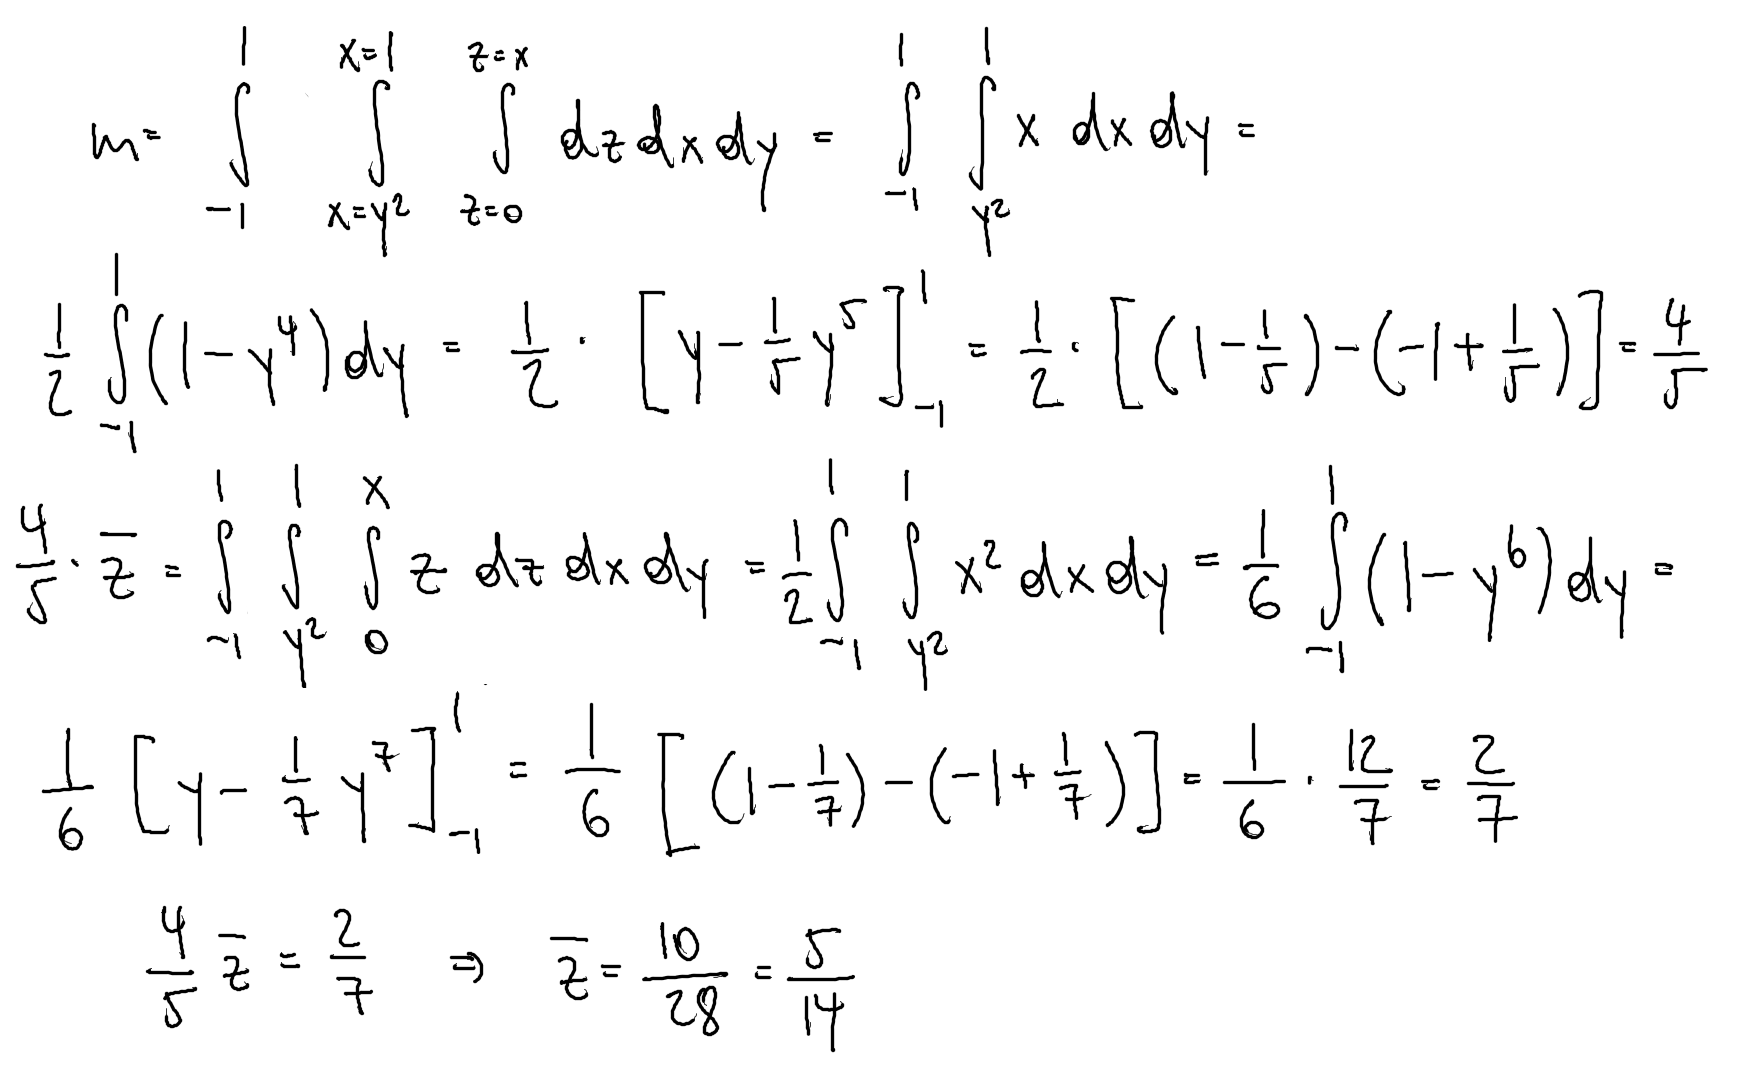 m = ∫_{-1}^{1} ∫_{x=y²}^{x=1} ∫_{z=0}^{z=x} dz dx dy = ∫_{-1}^{1} ∫_{y²}^{1} x dx dy =
1/2 ∫_{-1}^{1} (1 - y⁴) dy = 1/2 · [y - 1/5 y⁵]_{-1}^{1} = 1/2 · [(1 - 1/5) - (-1 + 1/5)] = 4/5
4/5 · z̄ = ∫_{-1}^{1} ∫_{y²}^{1} ∫_{0}^{x} z dz dx dy = 1/2 ∫_{-1}^{1} ∫_{y²}^{1} x² dx dy = 1/6 ∫_{-1}^{1} (1 - y⁶) dy =
1/6 [y - 1/7 y⁷]_{-1}^{1} = 1/6 [(1 - 1/7) - (-1 + 1/7)] = 1/6 · 12/7 = 2/7
4/5 z̄ = 2/7 ⇒ z̄ = 10/28 = 5/14